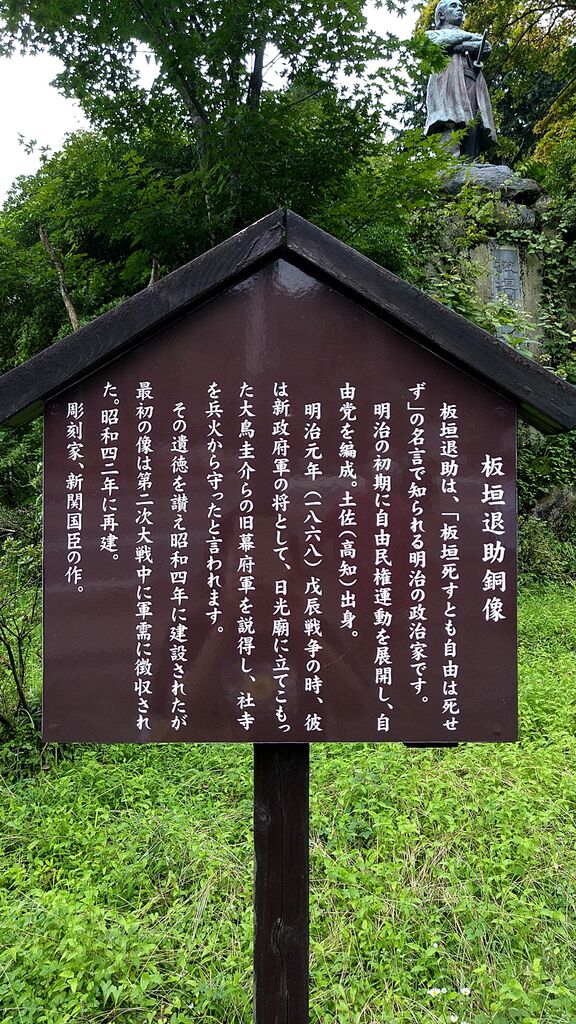 板垣退助銅像
板垣退助は、「板垣死すとも自由は死せ
ず」の名言で知られる明治の政治家です。
明治の初期に自由民権運動を展開し、自
由党を編成。土佐（高知）出身。
明治元年（一八六八）戊辰戦争の時、彼
は新政府軍の将として、日光廟に立てこもっ
た大鳥圭介らの旧幕府軍を説得し、社寺
を兵火から守ったと言われます。
その遺徳を讃え昭和四年に建設されたが
最初の像は第二次大戦中に軍需に徴収され
た。昭和四二年に再建。
彫刻家、新関国臣の作。
板垣